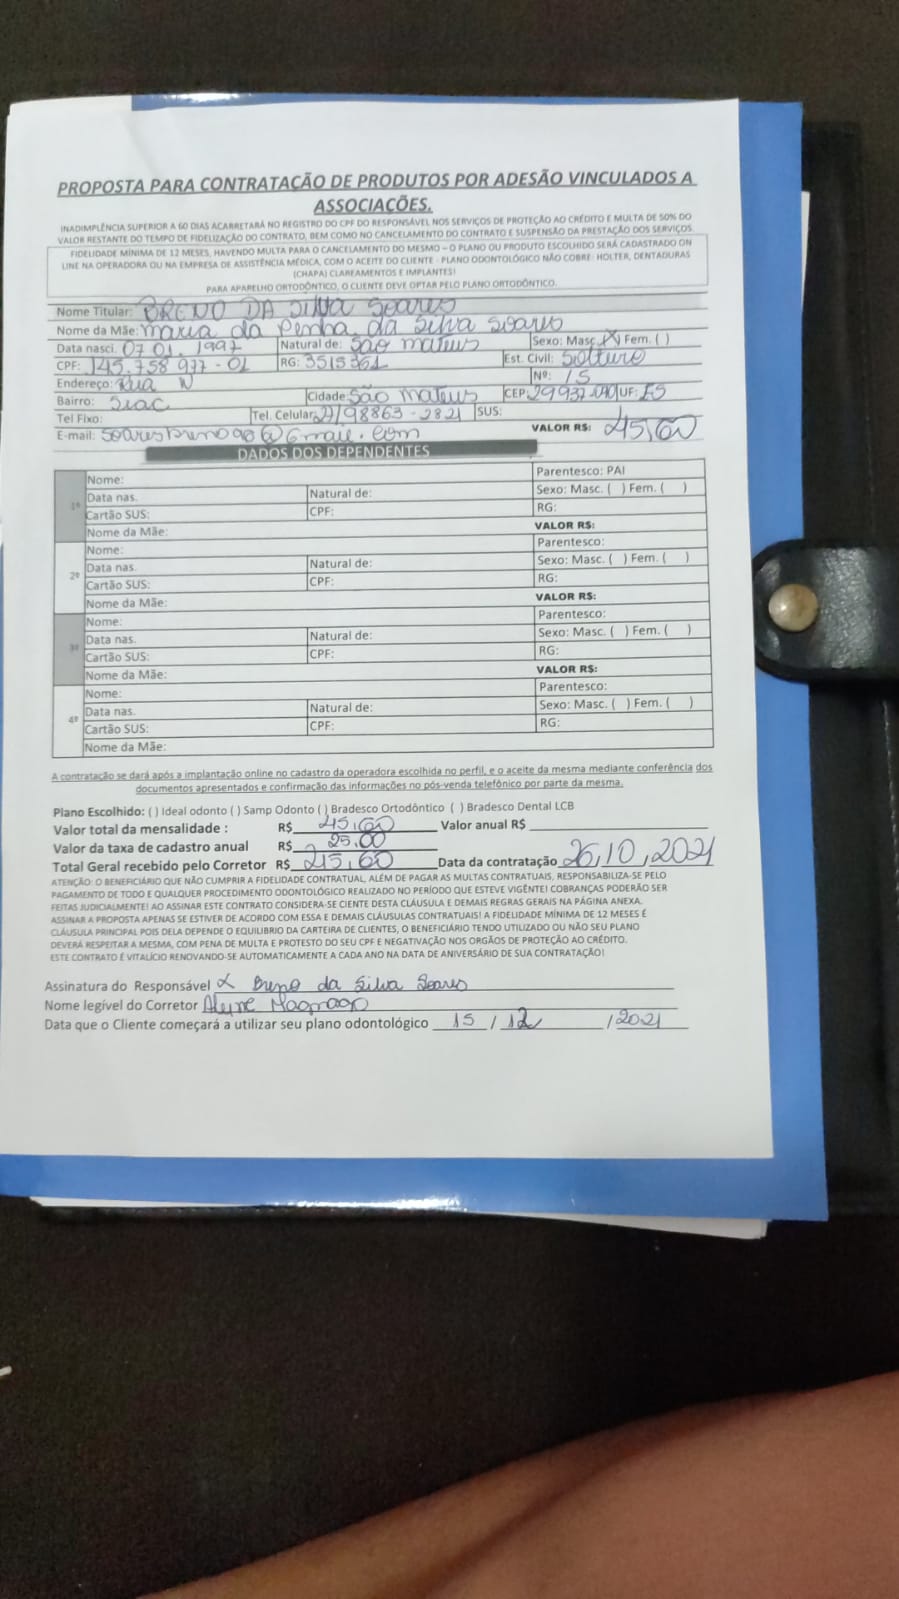 PROPOSTA PARA CONTRATAÇÃO DE PRODUTOS POR ADESÃO VINCULADOS A
ASSOCIACÕES.
INADIMPLÊNCIA SUPERIOR A 60 DIAS ACARRETARÁ NO REGISTRO DO CPF DO RESPONSÁVEL NOS SERVIÇOS DE PROTEÇÃO AO CRÉDITO E MULTA DE 50% DO
VALOR RESTANTE DO TEMPO DE FIDELIZAÇÃO DO CONTRATO, BEM COMO NO CANCELAMENTO DO CONTRATO E SUSPENSÃO DA PRESTAÇÃO DOS SERVIÇOS.
FIDELIDADE MÍNIMA DE 12 MESES, HAVENDO MULTA PARA O CANCELAMENTO DO MESMO – O PLANO OU PRODUTO ESCOLHIDO SERÁ CADASTRADO ON
LINE NA OPERADORA OU NA EMPRESA DE ASSISTÊNCIA MÉDICA, COM O ACEITE DO CLIENTE - PLANO ODONTOLÓGICO NÃO COBRE: HOLTER, DENTADURAS
(CHAPA) CLAREAMENTOS E IMPLANTES!
PARA APARELHO ORTODÔNTICO, O CLIENTE DEVE OPTAR PELO PLANO ORTODÔNTICO.
Nome Titular: BRENO DA SILVA Soares
Nome da Mãe: maria da Penha da Silva Soares
Data nasci. 07 01. 1997 Natural de: São mateus Sexo: Masc. X Fem. ( )
CPF: 145.758 977-01 RG: 3515361 Est. Civil: Solturo
Endereço: Rua N Nº: 15
Bairro: Seac Cidade: São Mateus CEP: 29937-040 UF: ES
Tel Fixo: Tel. Celular: 27/98863-2821 SUS:
E-mail: soaresbreno90@Gmail.com VALOR R$: 45,60
DADOS DOS DEPENDENTES
1º Nome: Parentesco: PAI
Data nas. Natural de: Sexo: Masc. ( ) Fem. ( )
Cartão SUS: CPF: RG:
Nome da Mãe: VALOR R$:
2º Nome: Parentesco:
Data nas. Natural de: Sexo: Masc. ( ) Fem. ( )
Cartão SUS: CPF: RG:
Nome da Mãe: VALOR R$:
3º Nome: Parentesco:
Data nas. Natural de: Sexo: Masc. ( ) Fem. ( )
Cartão SUS: CPF: RG:
Nome da Mãe: VALOR R$:
4º Nome: Parentesco:
Data nas. Natural de: Sexo: Masc. ( ) Fem. ( )
Cartão SUS: CPF: RG:
Nome da Mãe:
A contratação se dará após a implantação online no cadastro da operadora escolhida no perfil, e o aceite da mesma mediante conferência dos
documentos apresentados e confirmação das informações no pós-venda telefônico por parte da mesma.
Plano Escolhido: ( ) Ideal odonto ( ) Samp Odonto ( ) Bradesco Ortodôntico ( ) Bradesco Dental LCB
Valor total da mensalidade : R$ 45,60 Valor anual R$
Valor da taxa de cadastro anual R$ 25,00
Total Geral recebido pelo Corretor R$ 45,60 Data da contratação 26,10,2021
ATENÇÃO: O BENEFICIÁRIO QUE NÃO CUMPRIR A FIDELIDADE CONTRATUAL, ALÉM DE PAGAR AS MULTAS CONTRATUAIS, RESPONSABILIZA-SE PELO
PAGAMENTO DE TODO E QUALQUER PROCEDIMENTO ODONTOLÓGICO REALIZADO NO PERÍODO QUE ESTEVE VIGÊNTE! COBRANÇAS PODERÃO SER
FEITAS JUDICIALMENTE! AO ASSINAR ESTE CONTRATO CONSIDERA-SE CIENTE DESTA CLÁUSULA E DEMAIS REGRAS GERAIS NA PÁGINA ANEXA.
ASSINAR A PROPOSTA APENAS SE ESTIVER DE ACORDO COM ESSA E DEMAIS CLÁUSULAS CONTRATUAIS! A FIDELIDADE MÍNIMA DE 12 MESES É
CLÁUSULA PRINCIPAL POIS DELA DEPENDE O EQUILIBRIO DA CARTEIRA DE CLIENTES, O BENEFICIÁRIO TENDO UTILIZADO OU NÃO SEU PLANO
DEVERÁ RESPEITAR A MESMA, COM PENA DE MULTA E PROTESTO DO SEU CPF E NEGATIVAÇÃO NOS ORGÃOS DE PROTEÇÃO AO CRÉDITO.
ESTE CONTRATO É VITALÍCIO RENOVANDO-SE AUTOMATICAMENTE A CADA ANO NA DATA DE ANIVERSÁRIO DE SUA CONTRATAÇÃO!
Assinatura do Responsável X Breno da Silva Soares
Nome legível do Corretor Alyne Magnago
Data que o Cliente começará a utilizar seu plano odontológico 15 / 12 / 2021